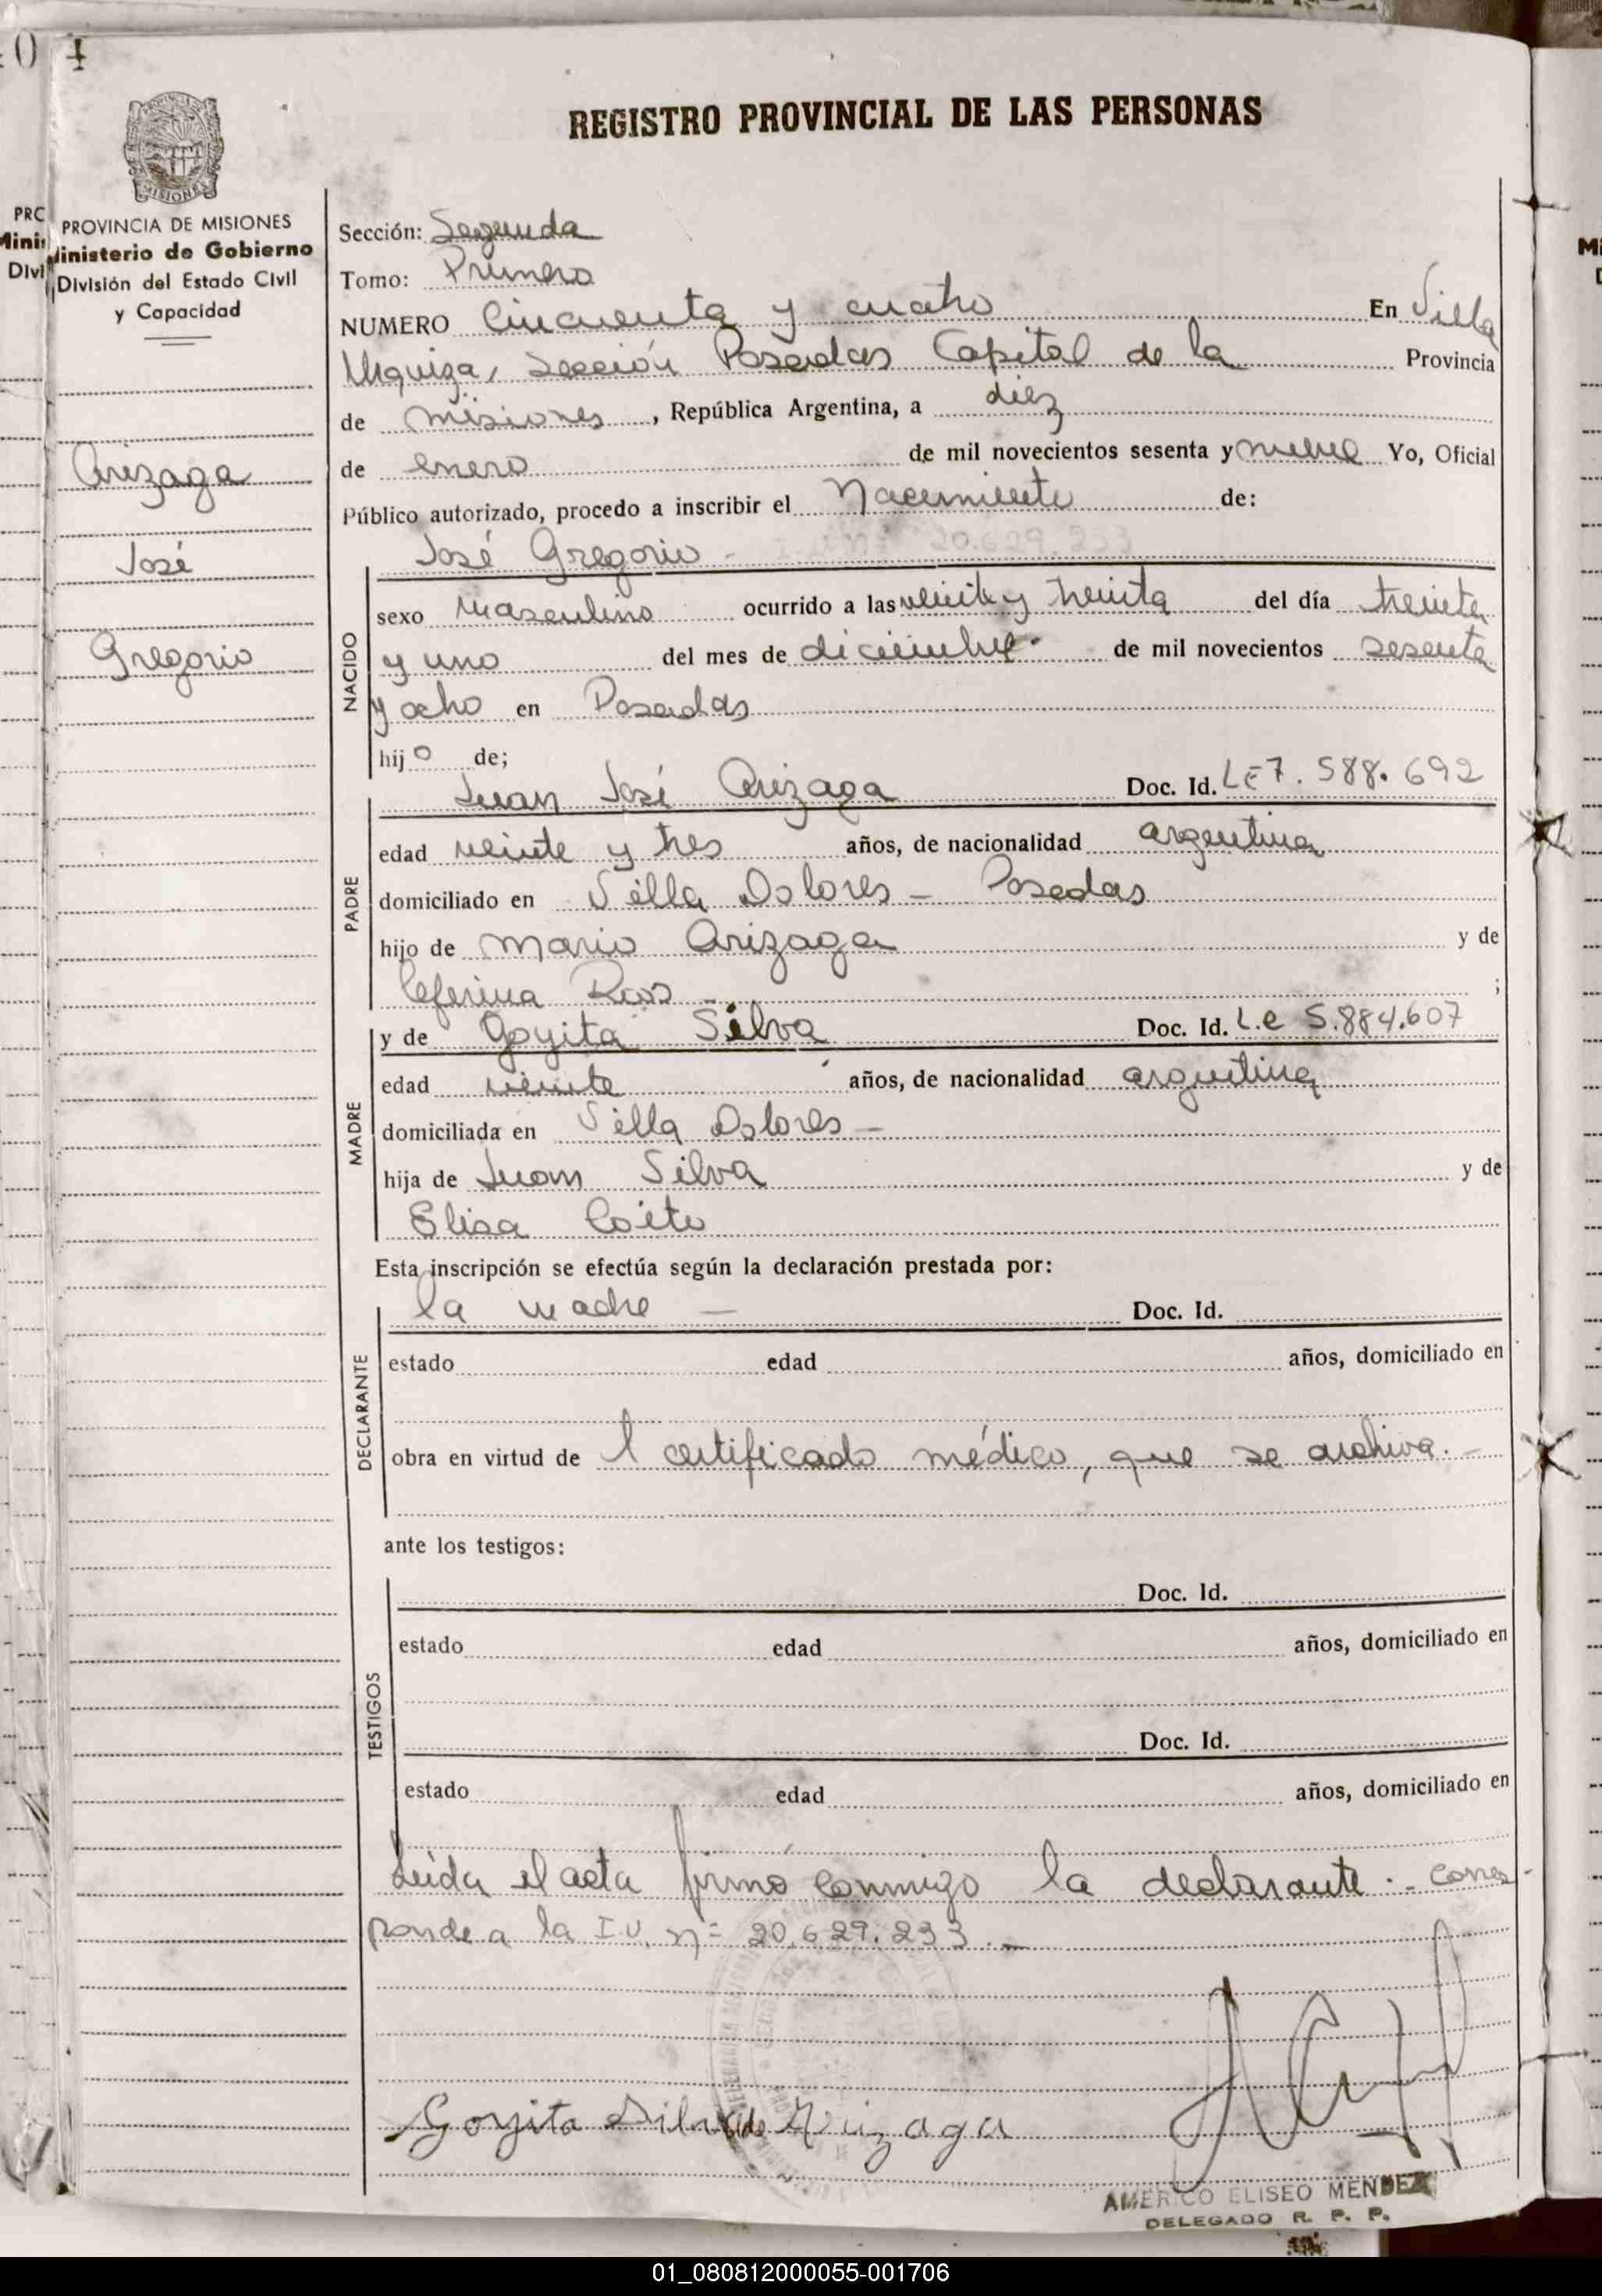 REGISTRO PROVINCIAL DE LAS PERSONAS
PROVINCIA DE MISIONES
Ministerio de Gobierno
División del Estado Civil
y Capacidad
Arizaga
José
Gregorio
Sección: Segunda
Tomo: Primero
NUMERO Cincuenta y cuatro En Villa
Urquiza, Sección Posadas Capital de la Provincia
de misiones, República Argentina, a diez
de enero de mil novecientos sesenta y nueve Yo, Oficial
Público autorizado, procedo a inscribir el Nacimiento de:
José Gregorio - 20.629.233
NACIDO
sexo masculino ocurrido a las veinte y treinta del día treinta
y uno del mes de diciembre de mil novecientos sesenta
y ocho en Posadas
hijo de;
PADRE
Juan José Arizaga Doc. Id. LE 7.588.692
edad veinte y tres años, de nacionalidad argentina
domiciliado en Villa Dolores - Posadas
hijo de Mario Arizaga y de
Ceferina Rios - ;
MADRE
y de Goyita Silva Doc. Id. L.e 5.884.607
edad veinte años, de nacionalidad argentina
domiciliada en Villa Dolores -
hija de Juan Silva y de
Elisa Coito
Esta inscripción se efectúa según la declaración prestada por:
DECLARANTE
la madre - Doc. Id.
estado edad años, domiciliado en
obra en virtud de 1 certificado médico, que se archiva. -
ante los testigos:
TESTIGOS
Doc. Id.
estado edad años, domiciliado en
Doc. Id.
estado edad años, domiciliado en
Leida el acta firmó conmigo la declarante.- corres-
ponde a la I.U. nº 20.629.233.-
Goyita Silva de Arizaga
AMERICO ELISEO MENDEZ
DELEGADO R. P. P.
01_080812000055-001706